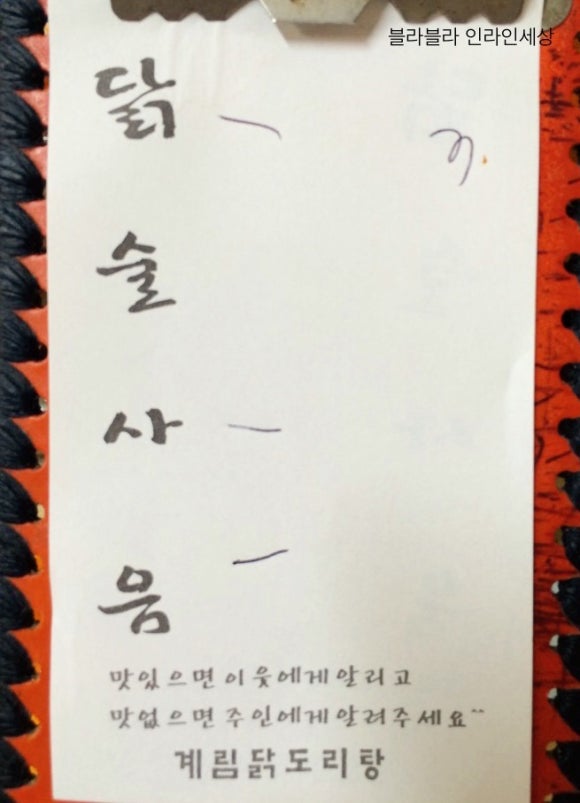 블라블라 인라인세상
닭
술
사
음
맛있으면이웃에게알리고
맛없으면주인에게알려주세요^^
계림닭도리탕